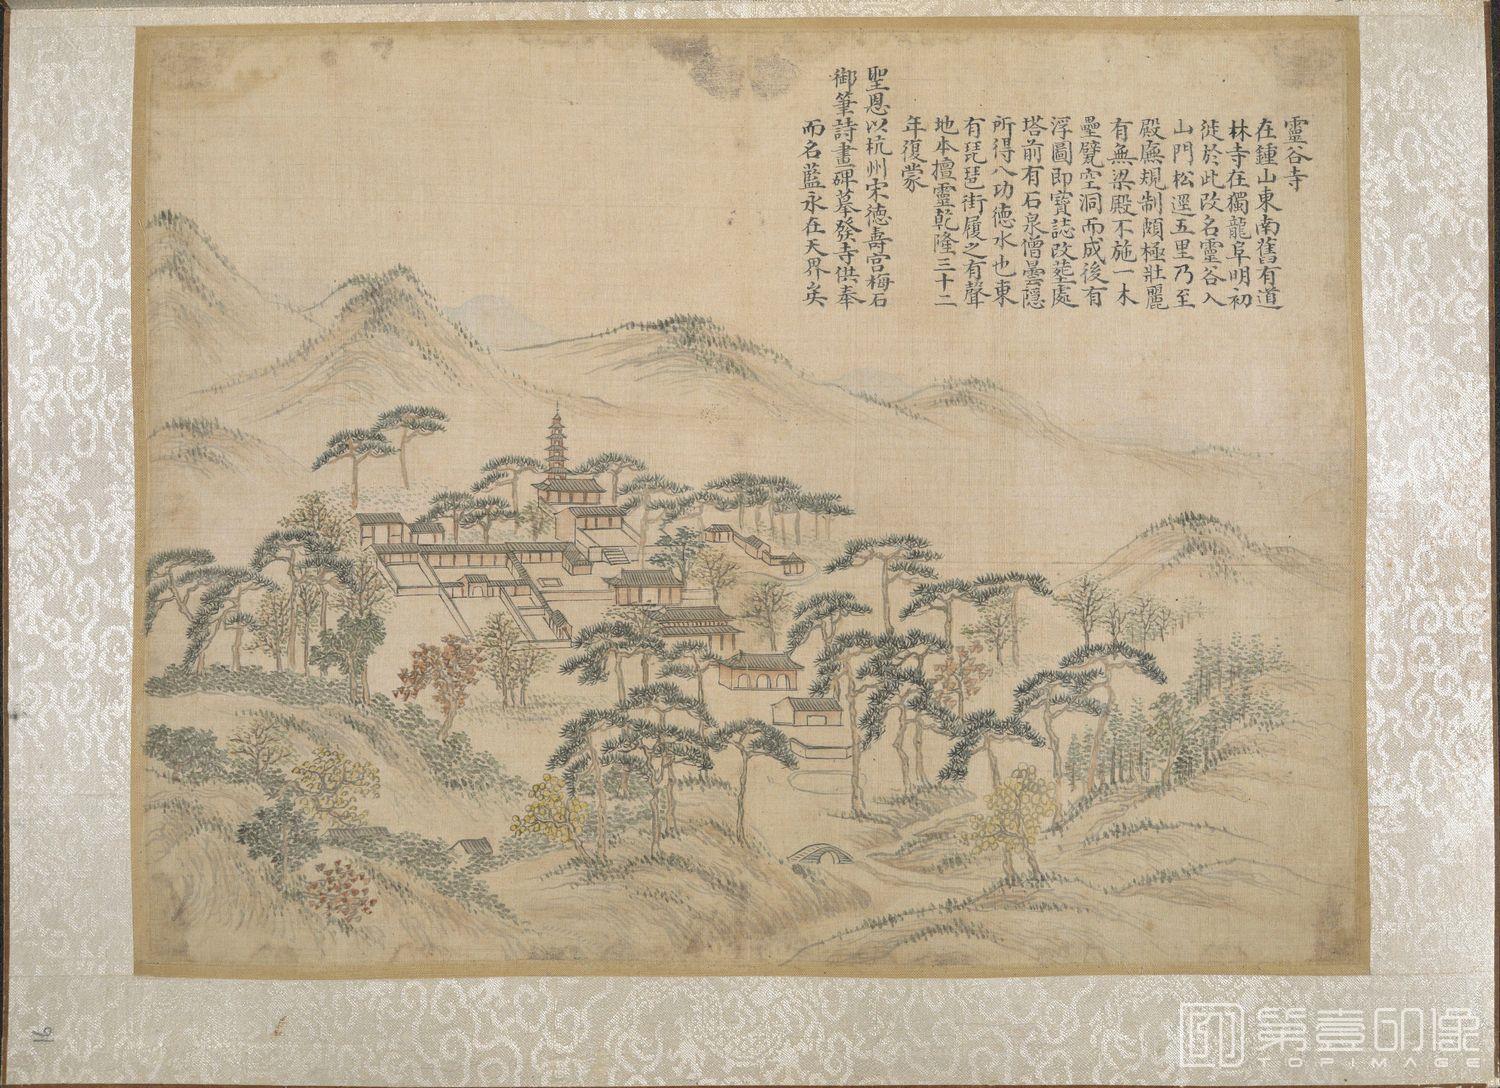 靈谷寺
在鍾山東南舊有道
林寺在獨龍阜明初
徙於此改名靈谷入
山門松逕五里乃至
殿廡規制頗極壯麗
有無梁殿不施一木
壘甓空洞而成後有
浮圖即寶誌改塟處
塔前有石泉僧曇隱
所得八功德水也東
有琵琶街履之有聲
地本擅靈乾隆三十二
年復蒙
聖恩以杭州宋德壽宮梅石
御筆詩畫碑摹發寺供奉
而名藍永在天界矣
16
第壹印像
TOPIMAGE